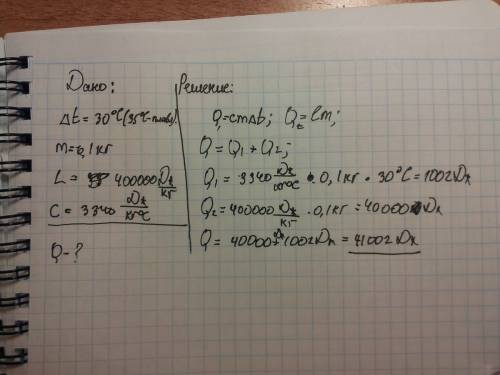 Дано:
Δt = 30°C (35°C-плавл.)
m = 0,1 кг
L = 400000 Дж/кг
C = 3340 Дж/кг°C
Q - ?
Решение:
Q₁=cmΔt; Q₂=Lm;
Q = Q₁ + Q₂;
Q₁ = 3340 Дж/кг°C • 0,1 кг • 30°C = 1002 Дж
Q₂ = 400000 Дж/кг • 0,1 кг = 40000 Дж
Q = 40000 Дж + 1002 Дж = 41002 Дж